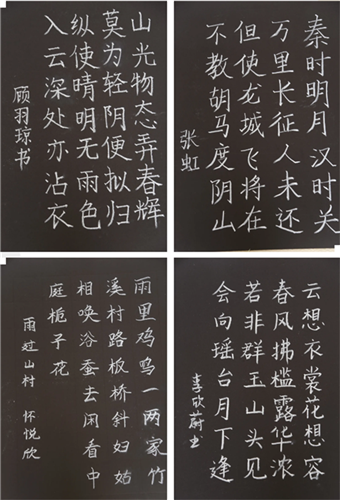 山光物态弄春辉
莫为轻阴便拟归
纵使晴明无雨色
入云深处亦沾衣
顾羽琼书
秦时明月汉时关
万里长征人未还
但使龙城飞将在
不教胡马度阴山
张虹
雨里鸡鸣一两家竹
溪村路板桥斜妇姑
相唤浴蚕去闲看中
庭栀子花
雨过山村 怀悦欣
云想衣裳花想容
春风拂槛露华浓
若非群玉山头见
会向瑶台月下逢
李欣蔚书